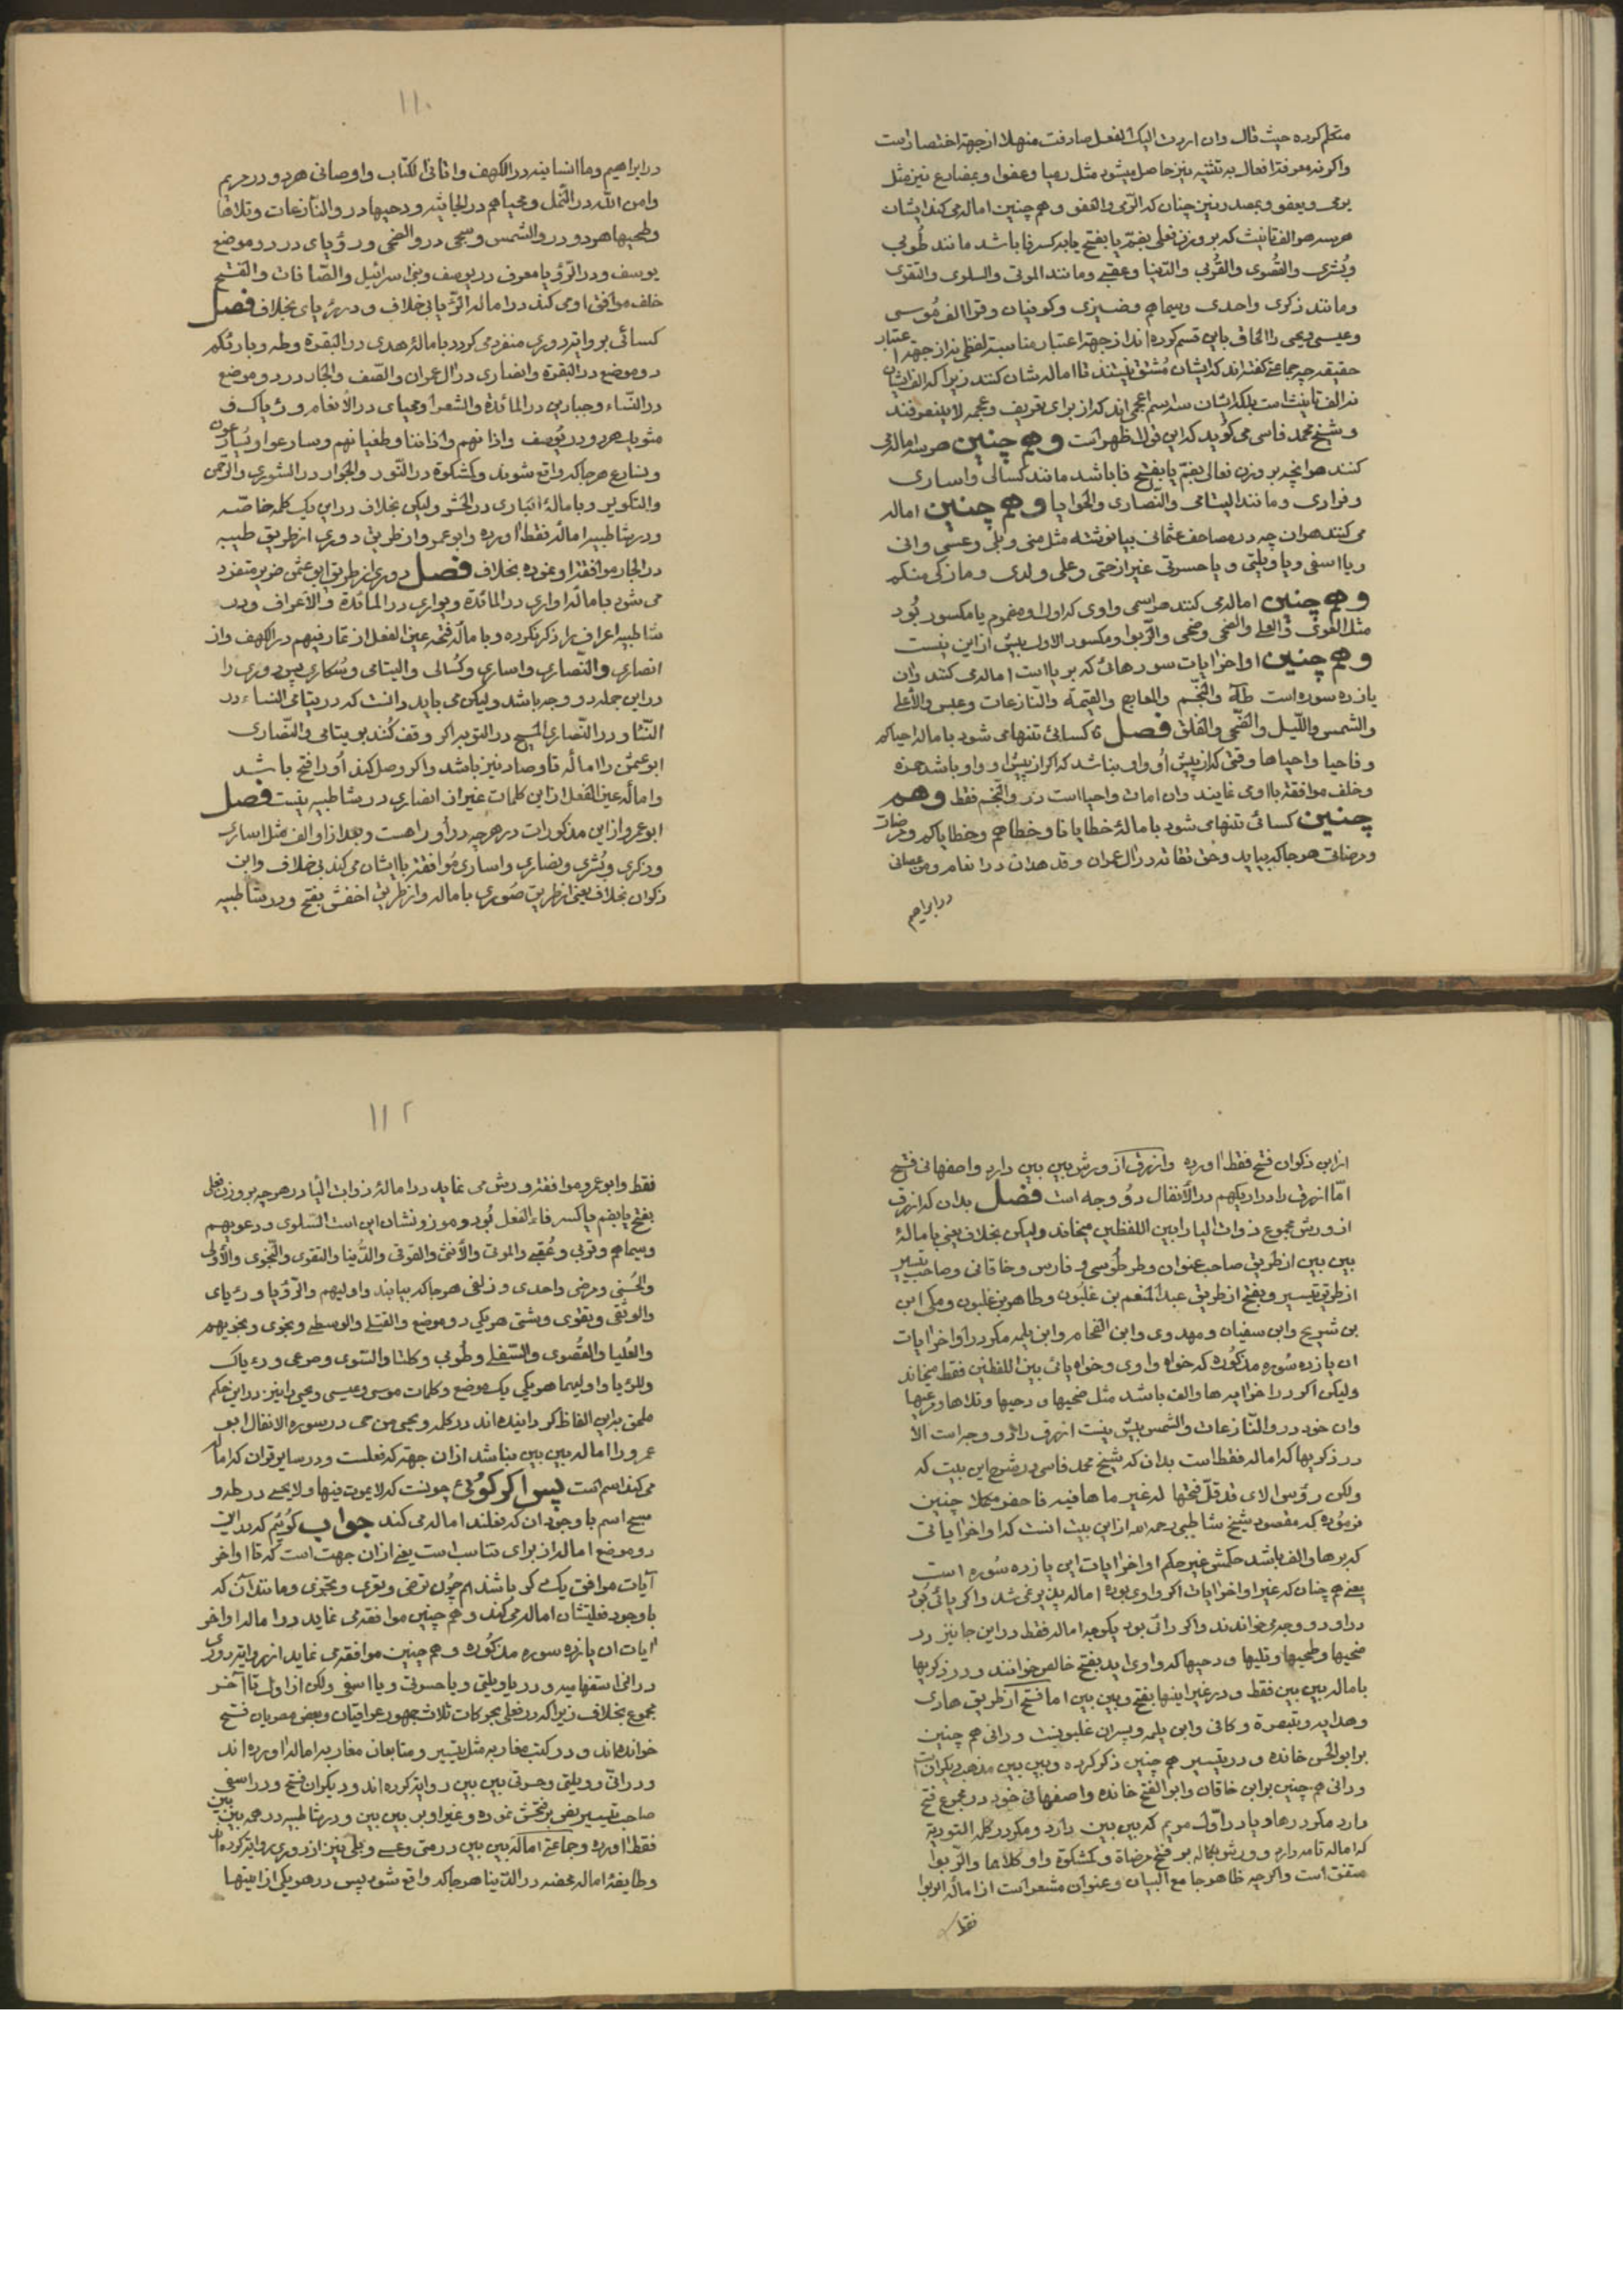 متکلم کرده حیث قال وان رددت الیک الفعل صادفت منهلا از جهة اختصار است
واکر نه معرفة افعال به تثنیه نیز حاصل میشود مثل رمیا وعفوا وبمضارع نیز مثل
یرمی ویعفو وبمصدر نیز چنان که الرّمی والعفو وهم چنین اماله می کنند ایشان
هر سه هر الف تانیث که بر وزن فعلی بضمّ یا بفتح یا بکسر فا باشد مانند طُوبی
وبُشری والقُصوی والقُربی والدّنیا وعقبی ومانند الموتی والسلوی والتقوی
ومانند ذکری واحدی وسیماهم وضیزی وکوفیان وقرّا الف مُوسی
وعیسی ویحیی را الحاق باین قسم کرده اند از جهة اعتبار مناسبة لفظی نه از جهة اعتبار
حقیقه چه جماعتی کفته اند که ایشان مُشتق نیستند تا اماله شان کنند زیرا که الف ایشان
نه الف تانیث است بلکه ایشان سه اسم اعجمی اند که از برای تعریف وعجمه لا ینصرفند
وشیخ محمد فاسی می کوید که این قول اظهر است وهم چنین هر سه اماله می
کنند هر انچه بر وزن فعالی بضمّ یا بفتح فا باشد مانند کسالی واساری
وفرادی ومانند الیتامی والنّصاری والحوایا وهم چنین اماله
می کنند هر ان چه در مصاحف عثمانی بیا نوشته مثل متی وبلی وعسی وانی
ویا اسفی ویا ویلتی ویا حسرتی غیر از حتی وعلی ولدی وما زکی منکم
وهم چنین اماله می کنند هر اسمی واوی که اول او مضموم یا مکسور بُود
مثل القوی والعلی والضحی وضحی والرّبوا ومکسور الاول بیش از این نیست
وهم چنین اواخر ایات سورهائی که بر یا است اماله می کنند وان
یازده سوره است طه والنّجم والمعارج والقیمة والنّازعات وعبس والأعلی
والشمس واللّیل والضّحی والعلق فصل کسائی تنها می شود باماله احیاکم
وفاحیا واحیاها وقتی که از پیش او واو نباشد که اکر از پیش او واو باشد حمزه
وخلف موافقة با او می نمایند وان امات واحیا است در والنّجم فقط وهم
چنین کسائی تنها می شود بامالهٔ خطایانا وخطایاهم وخطایاکم ومرضات
ومرضاتی هر جا که بیاید وحق تقاته در ال عمران وقد هدان در انعام ومن عصانی
در ابراهیم
۱۱۰
در ابراهیم وما انسانیه در الکهف واتانی الکتاب واوصانی هر دو در مریم
واتن الله در النّمل ومحیاهم در الجاثیه ودحیها در والنّازعات وتلاها
وطحیها هر دو در والشمس وسجی در والضحی ورؤیای در دو موضع
یوسف ودر الرّؤیا معرف در یوسف وبنی اسرائیل والصّافات والفتح
خلف موافق او می کند در اماله الرّؤیا بی خلاف ودر رؤیای بخلاف فصل
کسائی بروایة دوری منفرد می کردد بامالهٔ هدی در البقرة وطه وبارئکم
دو موضع در البقرة وانصاری در ال عمران والصّف والجار در دو موضع
در النّساء وجبارین در المائدة والشعرا ومحیای در الأنعام ورؤیاک
مثوای هر دو در یُوسف واذانهم واذاننا وطغیانهم وسارعوا ویُسارعون
ونسارع هر جا که واقع شوند وکمشکوة در النّور والجوار در الشوری والرّحمن
والتکویر وبامالهٔ الباری در الحشر ولیکن بخلاف در این یک کلمه خاصّه
ودر شاطبیه امالهٔ فقط اورده وابوعمرو از طریق دوری از طریق طیبه
در الجار موافقة او نموده بخلاف فصل دوری از طریق ابو عثمن ضریر متفرد
می شود بامالهٔ اواری در المائدة ویواری در المائدة والأعراف ودر
شاطبیه اعراف را ذکر نکرده وبامالهٔ فتحه عین الفعل از تمار فیهم در الکهف واز
انصاری والنّصاری واساری وکسالی والیتامی وسُکاری پس دوری را
در این جمله دو وجه باشد ولیکن می باید دانست که در یتامی النساء در
النّسا ودر النّصاری المسیح در التوبه اکر وقف کُند بر یتامی والنّصاری
ابو عثمن را امالهٔ تا وصاد نیز باشد واکر وصل کند اُو را فتح باشد
وامالهٔ عین الفعل از این کلمات غیر از انصاری در شاطبیه نیست فصل
ابو عمرو از این مذکورات در هر چه در او را هست وبعد از او الف مثل اساری
وذکری وبُشری ونصاری واساری موافقة با ایشان می کند بی خلاف وابن
ذکوان بخلاف یعنی از طریق صُوری باماله واز طریق اخفش بفتح ودر شاطبیه
از ابن ذکوان فتح فقط اورده وازرق از ورش بین بین دارد واصفهانی فتح
امّا ازرق را در اریکهم در الأنفال دُو وجه است فصل بدان که ازرق
از ورش مجموع ذوات الیا را بین اللفظین میخاند ولیکن بخلاف یعنی بامالهٔ
بین بین از طریق صاحب عنوان وطرطُوسی وفارس وخاقانی وصاحب تیسیر
از طریق تیسیر وبفتح از طریق عبد المنعم بن غلبُون وطاهر بن غلبون ومکی ابن
بن شریح وابن سفیان ومهدوی وابن الفحام وابن بلیمه مکر در اواخر ایات
ان یازده سُوره مذکوره که خواه واوی وخواه یائی بین اللفظین فقط میخاند
ولیکن اکر در اخر ایه ها والف باشد مثل ضحیها ودحیها وتلاها ومرعیها
وان خود در والنّازعات والشمس بیش نیست ازرق را دو وجه است الا
در ذکریها که اماله فقط است بدان که شیخ محمد فاسی در شرح این بیت که
ولکن رؤس الای قد قلّ فتحها له غیر ما ها فیه فاحضر مکملا چنین
فرمُوده که مقصود شیخ شاطبی رحمه الله از این بیت انست که اواخر ایاتی
که بر ها والف باشد حکمش غیر حکم اواخر ایات این یازده سُوره است
یعنی هم چنان که غیر اواخر ایات اکر واوی بوده اماله پذیر نمی شد واکر یائی بُود
در او دو وجه می خواندند واکر رائی بود یک وجه اماله فقط در این جا نیز در
ضحیها وطحیها وتلیها ودحیها که واوی اید بفتح خالص خوانند ودر ذکریها
باماله بین بین فقط ودر غیر اینها بفتح وبین بین اما فتح از طریق هادی
وهدایه وتبصرة وکافی وابن بلیمه وپسران غلبونست ودانی هم چنین
بر ابو الحسن خانده ودر تیسیر هم چنین ذکر کرده وبین بین مذهب دیکران است
ودانی هم چنین بر ابن خاقان وابو الفتح خانده واصفهانی خود در مجموع فتح
دارد مکر در ها ویا در اوّل مریم که بین بین دارد ومکر در کلمه التوریة
که اماله تامه دارد وورش بکماله بر فتح مرضاة وکمشکوة واو کلاهما والرّبوا
متفق است واکرچه ظاهر جامع البیان وعنوان مشعر است از امالهٔ الربوا
فقط
۱۱۲
فقط وابو عمرو موافقة ورش می نماید در امالهٔ ذوات الیا در هر چه بر وزن فعلی
بفتح یا بضم یا بکسر فاء الفعل بُود وموزونشان این است السّلوی ودعویهم
وسیماهم وقربی وعُقبی والموتی والأنثی والقوتی والدُّنیا والتقوی والنّجوی والأولی
والحُسنی ومرضی واحدی وزلفی هر جا که بیایند واولیهم والرّؤیا ورؤیای
والوثقی وتقوی وشتی هر یکی دو موضع والقتلی والوسطی ونجوی ونجویهم
والعُلیا والقُصوی والسُّفلی وطُوبی وکلتا والسّوی وصرعی ورءیاک
وللرؤیا واولیهما هر یکی یک موضع وکلمات موسی وعیسی ویحیی را نیز در این حکم
ملحق باین الفاظ کردانیده اند در کلمه ویحیی من حی در سوره الانفال ابو
عمرو را اماله بین بین نباشد از ان جهة که فعلست ودر سایر قران که اماله
می کند اسم است پس اکر کوئی چونست که لا یموت فیها ولا یحیی در طه و
سبح اسم با وجود ان که فعلند اماله می کند جواب کوئیم که در این
دو موضع اماله از برای تناسب است یعنی از ان جهت است که تا اواخر
آیات موافق یک دیکر باشند هم چون ترضی وتعری وتجزی ومانند آن که
با وجود فعلیتشان اماله می کند وهم چنین موافقه می نماید در اماله اواخر
ایات ان یازده سوره مذکوره وهم چنین موافقه می نماید از روایة دوری
در انی استفهامیه ودر یا ویلتی ویا حسرتی ویا اسفی ولکن از اول تا آخر
مجموع بخلاف زیرا که در فعلی بحرکات ثلاث جمهور عراقیان وبعض مصریان فتح
خوانده اند ودر کتب مغاربه مثل تیسیر ومتابعان مغاربه اماله اورده اند
ودر انّی وویلتی وحسرتی بین بین روایة کرده اند ودیکران فتح ودر اسفی
صاحب تیسیر نص بر فتحش نموده وغیر او بر بین بین ودر شاطبیه در همه بین بین
فقط اورده وجماعتی امالهٔ بین بین در متی وعسی وبلی نیز از دوری روایة کرده اند
وطایفهٔ اماله محضه در الدّنیا هر جا که واقع شود پس در هر یکی از اینها